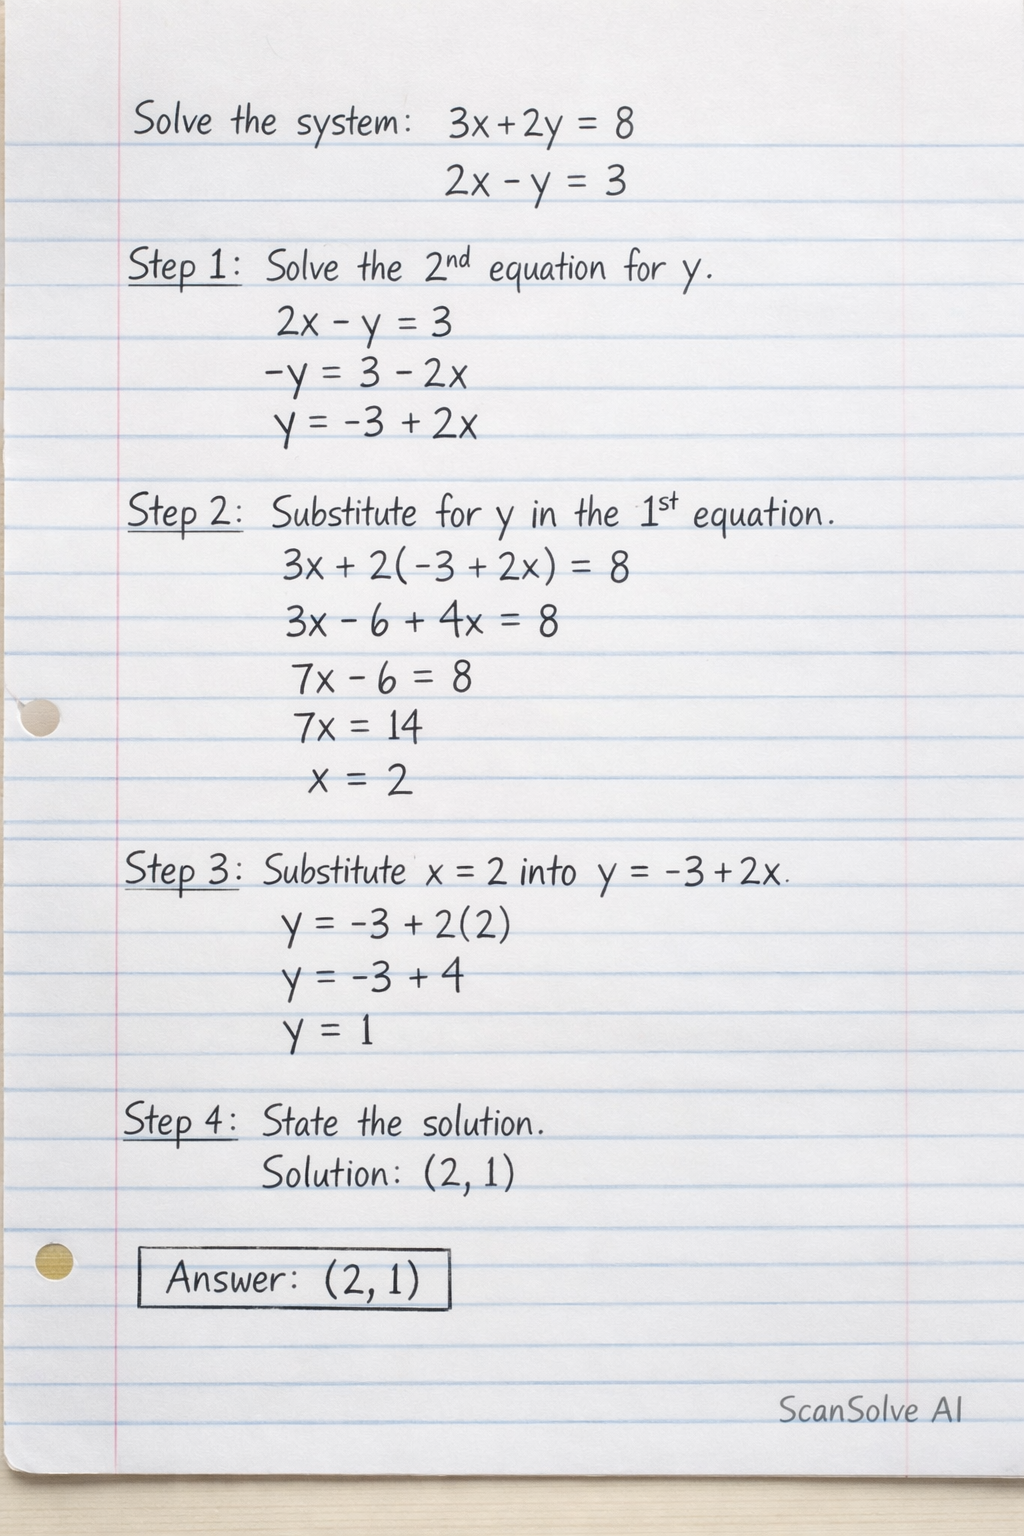 Solve the system: 3x+2y = 8
2x - y = 3
Step 1: Solve the 2nd equation for y.
2x - y = 3
-y = 3 - 2x
y = -3 + 2x
Step 2: Substitute for y in the 1st equation.
3x + 2(-3 + 2x) = 8
3x - 6 + 4x = 8
7x - 6 = 8
7x = 14
x = 2
Step 3: Substitute x = 2 into y = -3+2x.
y = -3 + 2(2)
y = -3 + 4
y = 1
Step 4: State the solution.
Solution: (2, 1)
Answer: (2, 1)
ScanSolve AI